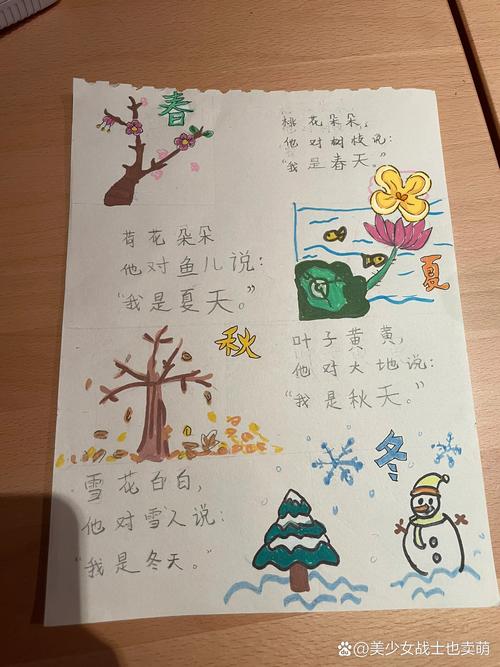 春
桃花朵朵，
他对树枝说：
“我是春天。”
荷花朵朵
他对鱼儿说：
“我是夏天。”
夏
秋
叶子黄黄，
他对大地说：
“我是秋天。”
冬
雪花白白，
他对雪人说：
“我是冬天。”
@美少女战士也卖萌